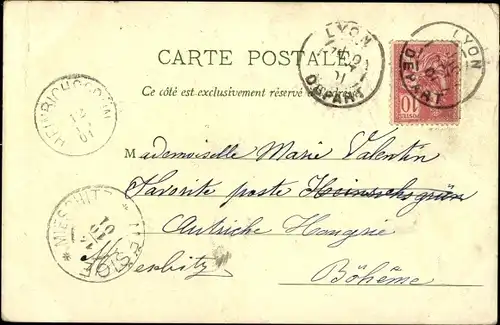 CARTE POSTALE
Ce côté est exclusivement réservé
LYON
DEPART
LYON
DEPART
10
HEINRICHSGRÜN
12
01
Mademoiselle Marie Valentin
Favorite poste Heinrichsgrün
Autriche Hongrie
Böhême
MIESCHITZ
01